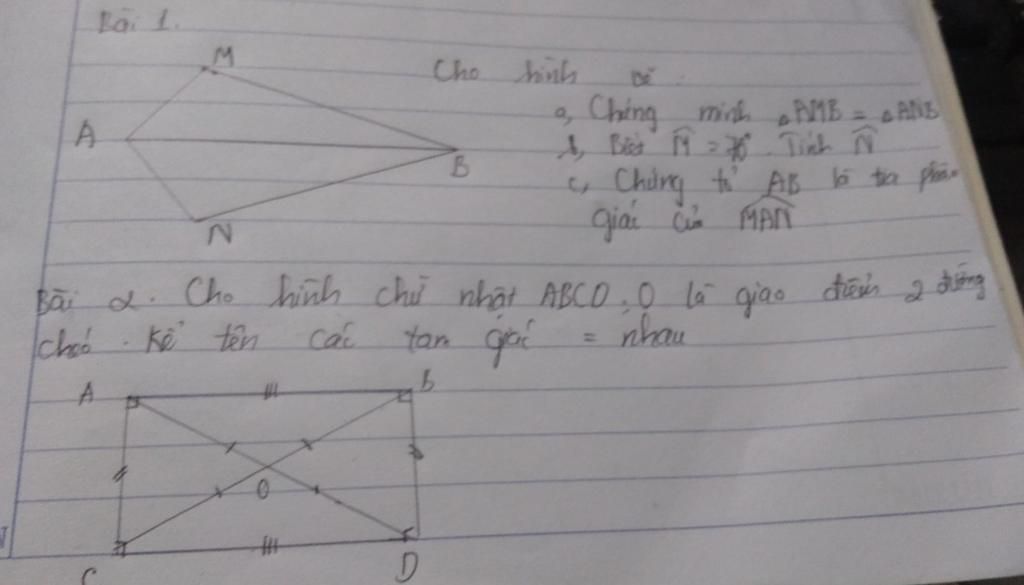 Bài 1.
M
A
B
N
Cho hình vẽ
a, Chứng minh △AMB = △ANB
b, Biết M̂ = 70° Tính N̂
c, Chứng tỏ AB là tia phân
giác của MAN
Bài 2. Cho hình chữ nhật ABCD, O là giao điểm 2 đường
chéo. Kể tên các tam giác = nhau
A
B
O
C
D